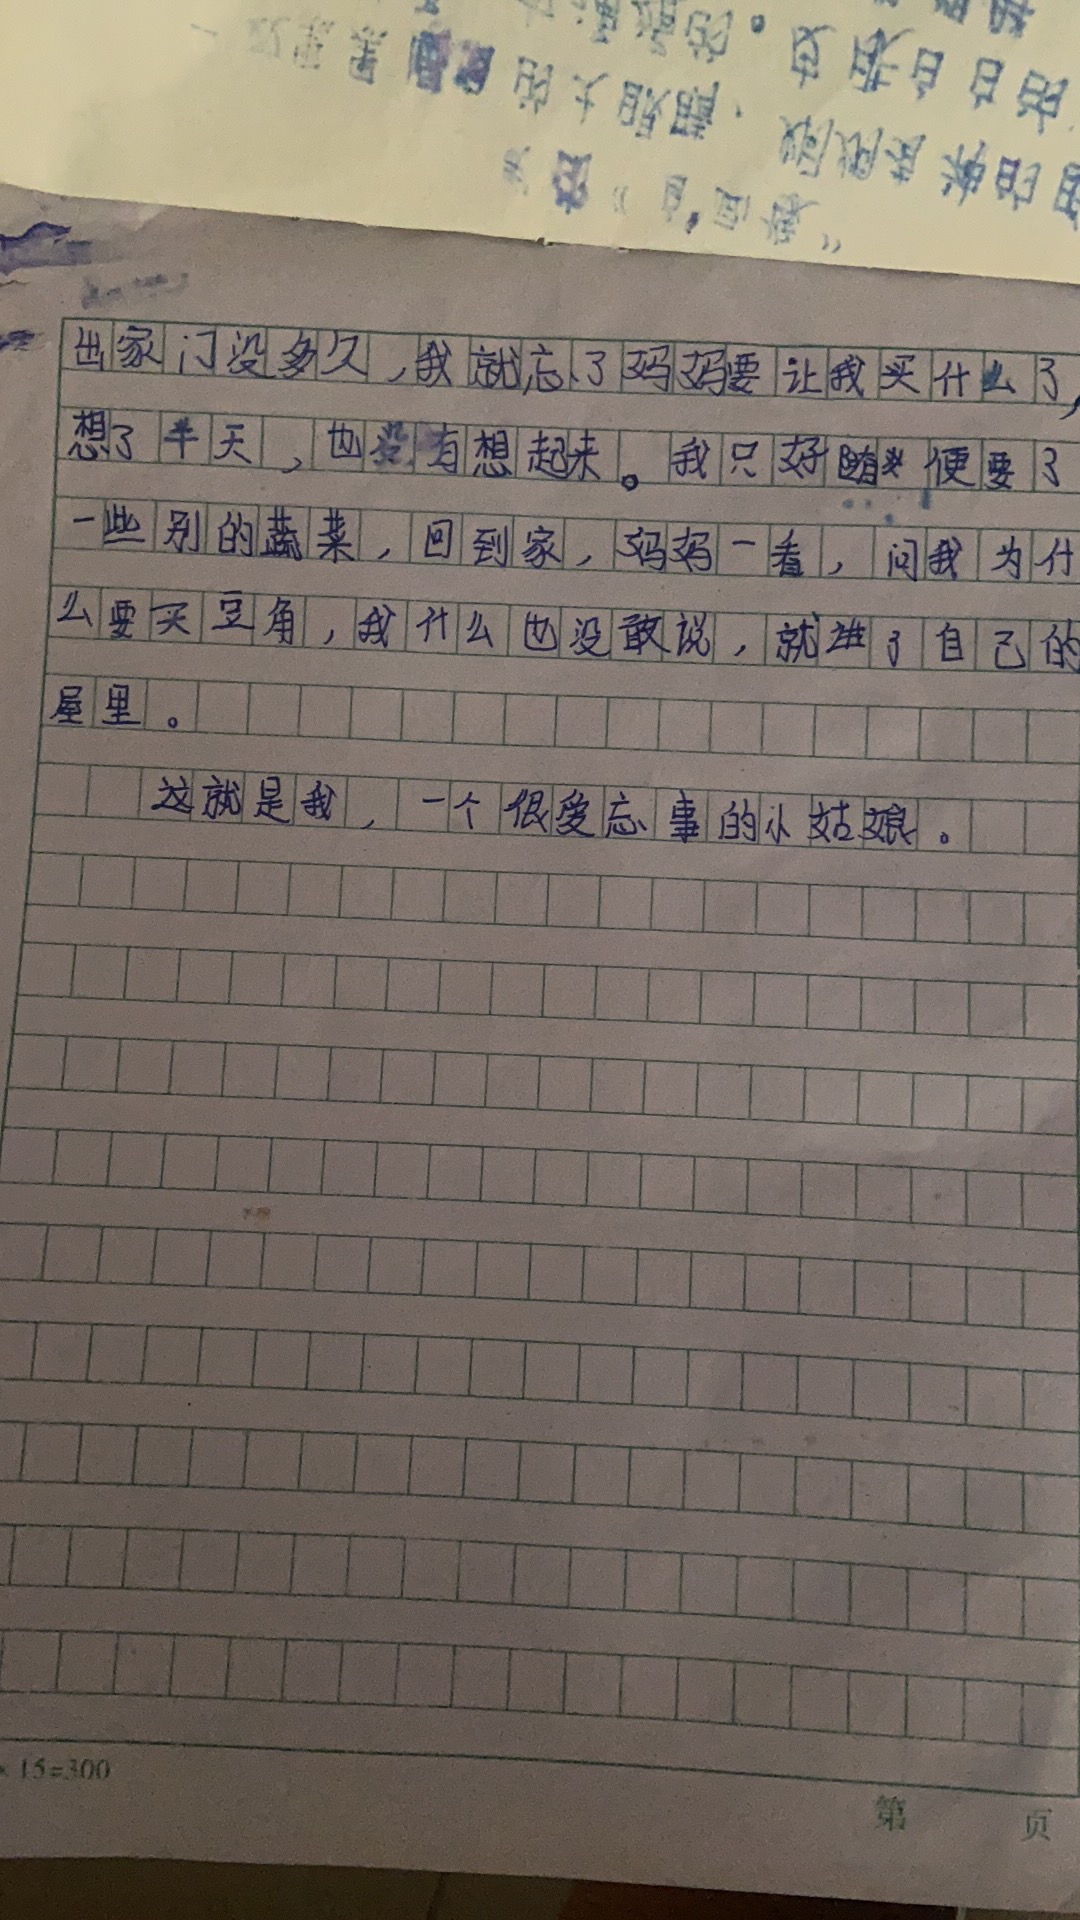 的大眼睛，
出家门没多久，我就忘了妈妈要让我买什么了，
想了半天，也没有想起来。我只好随便要了
一些别的蔬菜，回到家，妈妈一看，问我为什
么要买豆角，我什么也没敢说，就进了自己的
屋里。
这就是我，一个很爱忘事的小姑娘。
× 15=300
第 页